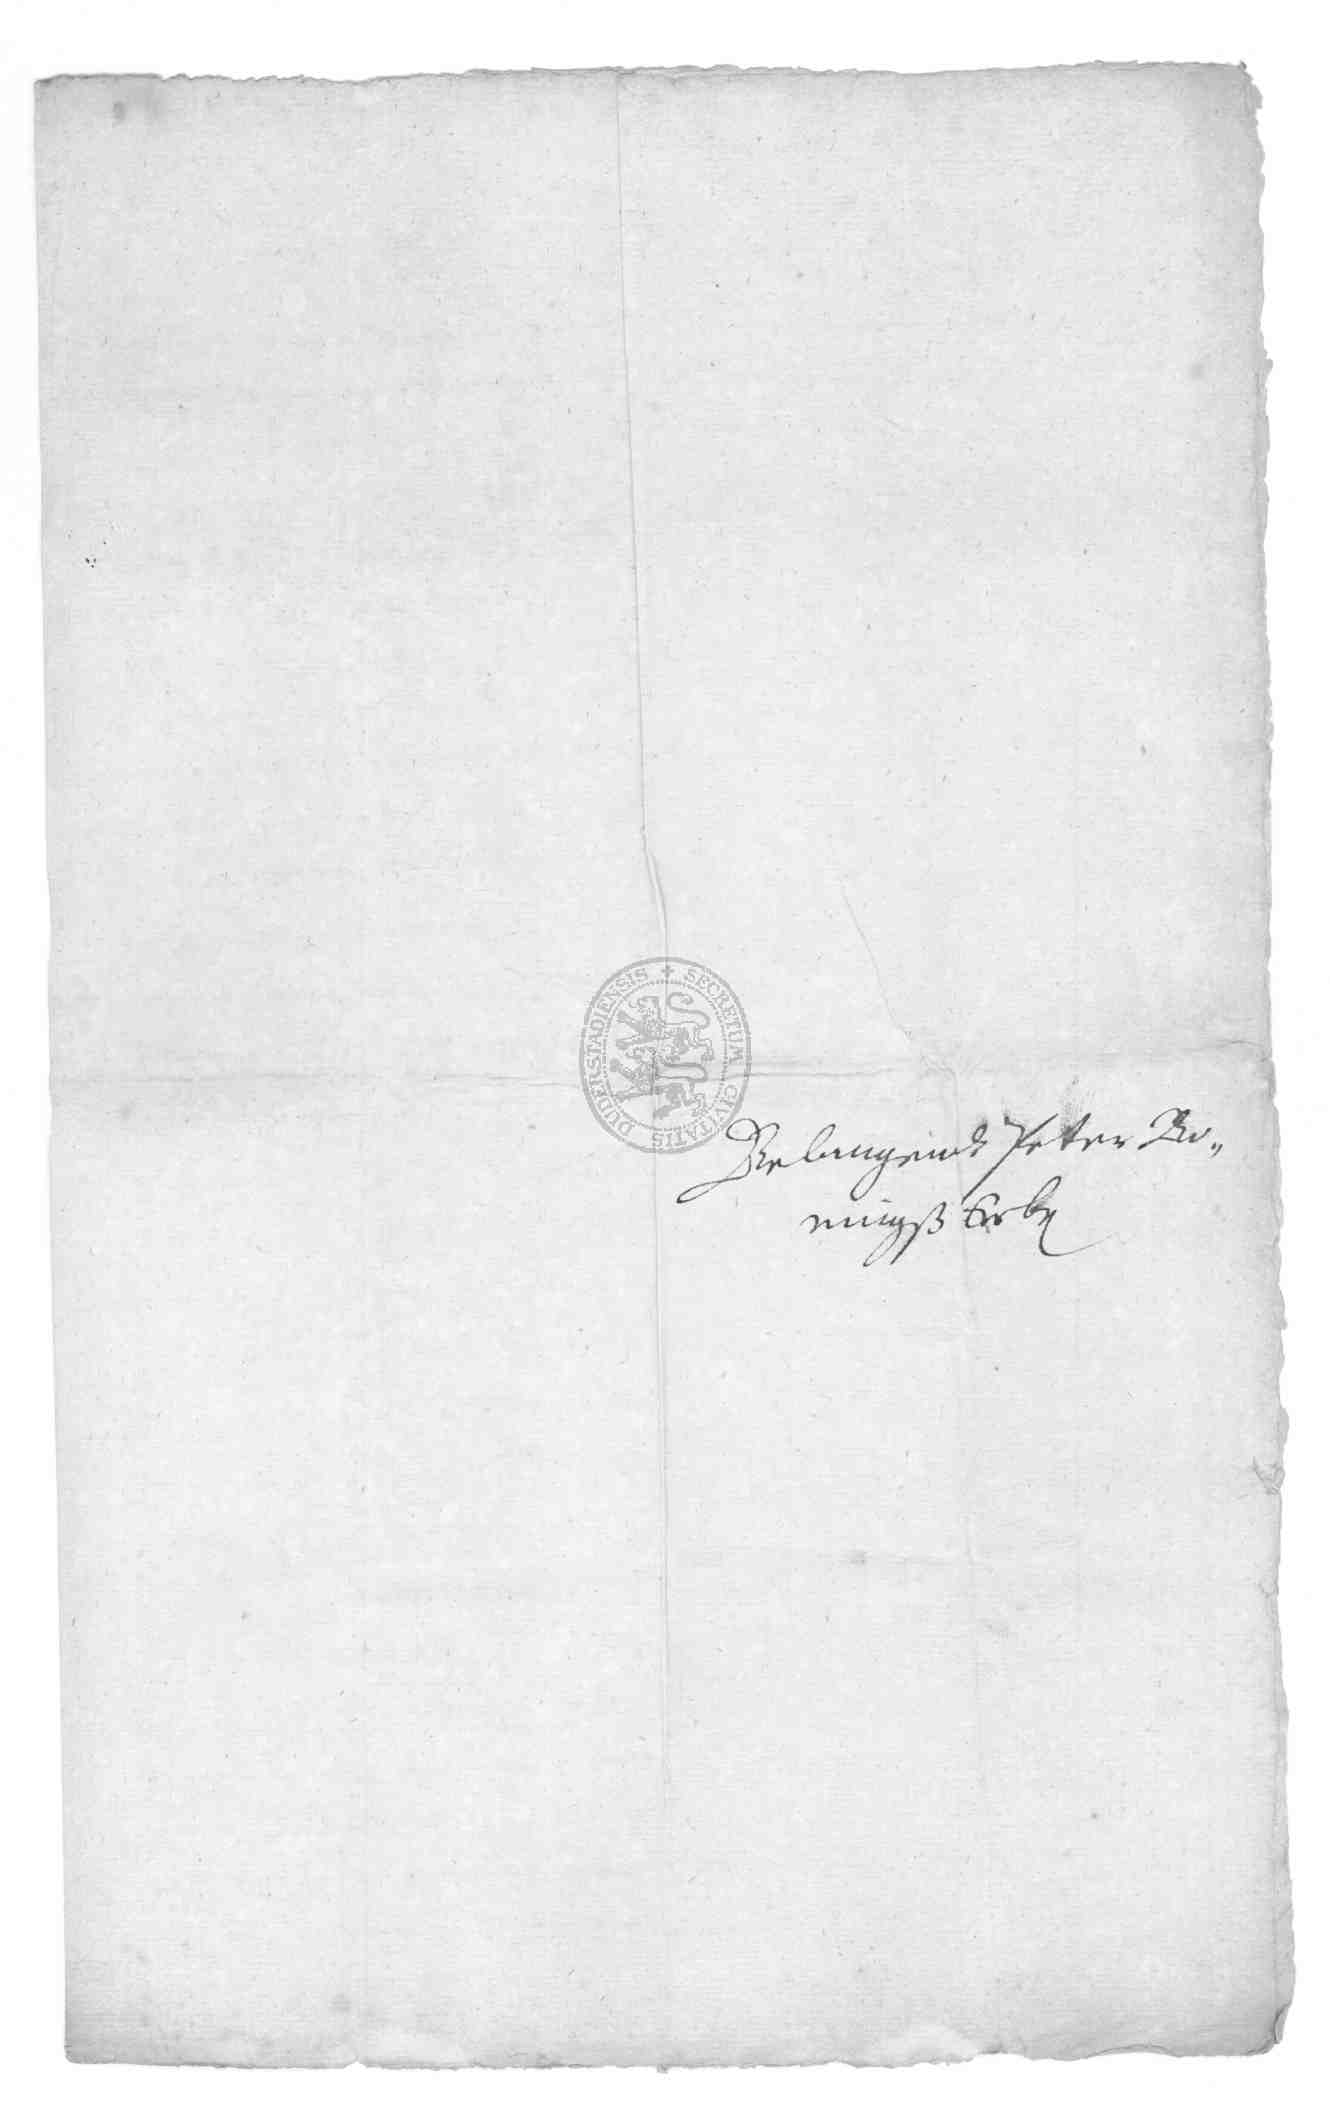 SECRETUM CIVITATIS DUDERSTADIENSIS
Belangendt Peter Ko„
nnigß Erbe